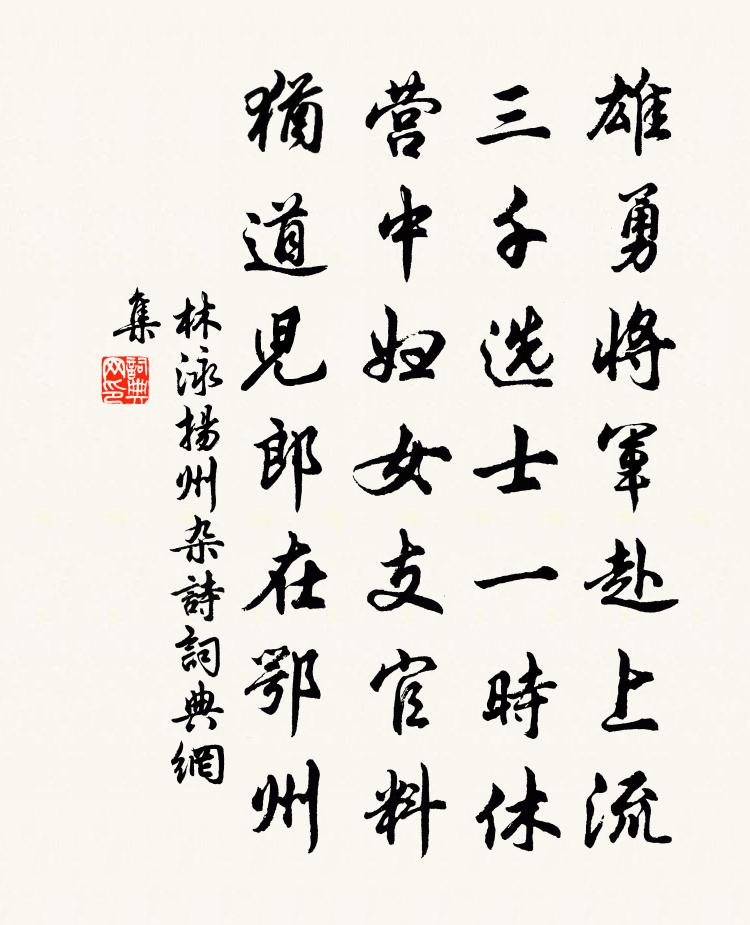 雄勇將軍赴上流
三千选士一時休
营中妇女支官料
猶道児郎在鄂州
林泳揚州杂詩詞典網
集
詞典
网印